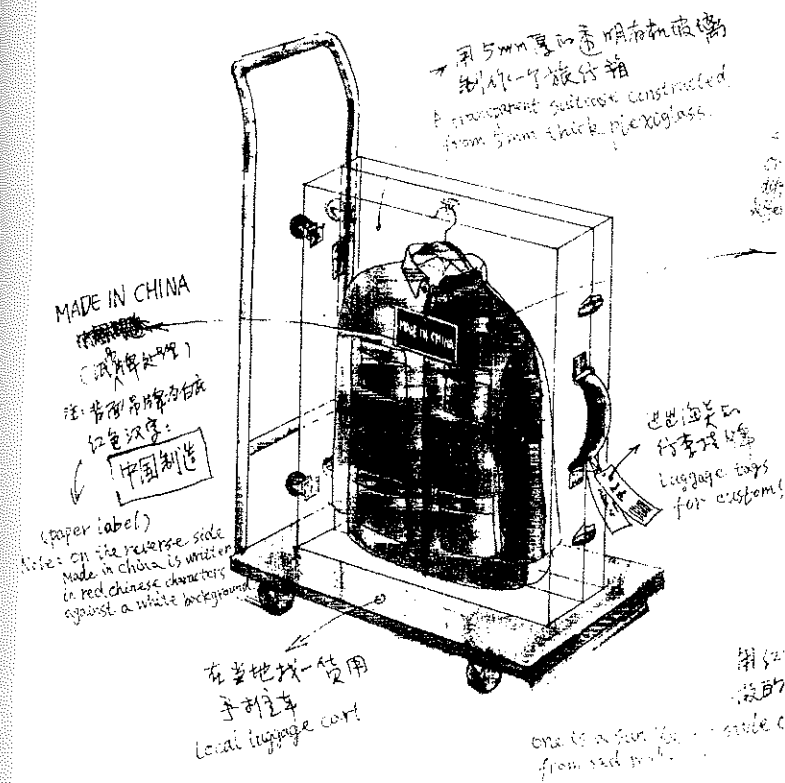 用5mm厚的透明有机玻璃
制作一个旅行箱
A transparent suitcase constructed
from 5mm thick plexiglass.
MADE IN CHINA
(纸牌处理)
注: 背面吊牌为白底
红色汉字:
中国制造
(paper label)
Note: on the reverse side
Made in china is written
in red chinese characters
against a white background
MADE IN CHINA
进出海关的
行李挂牌
Luggage tags
for customs
在当地找一货用
手推车
Local luggage cart
用红
做的
one is a sun
from red